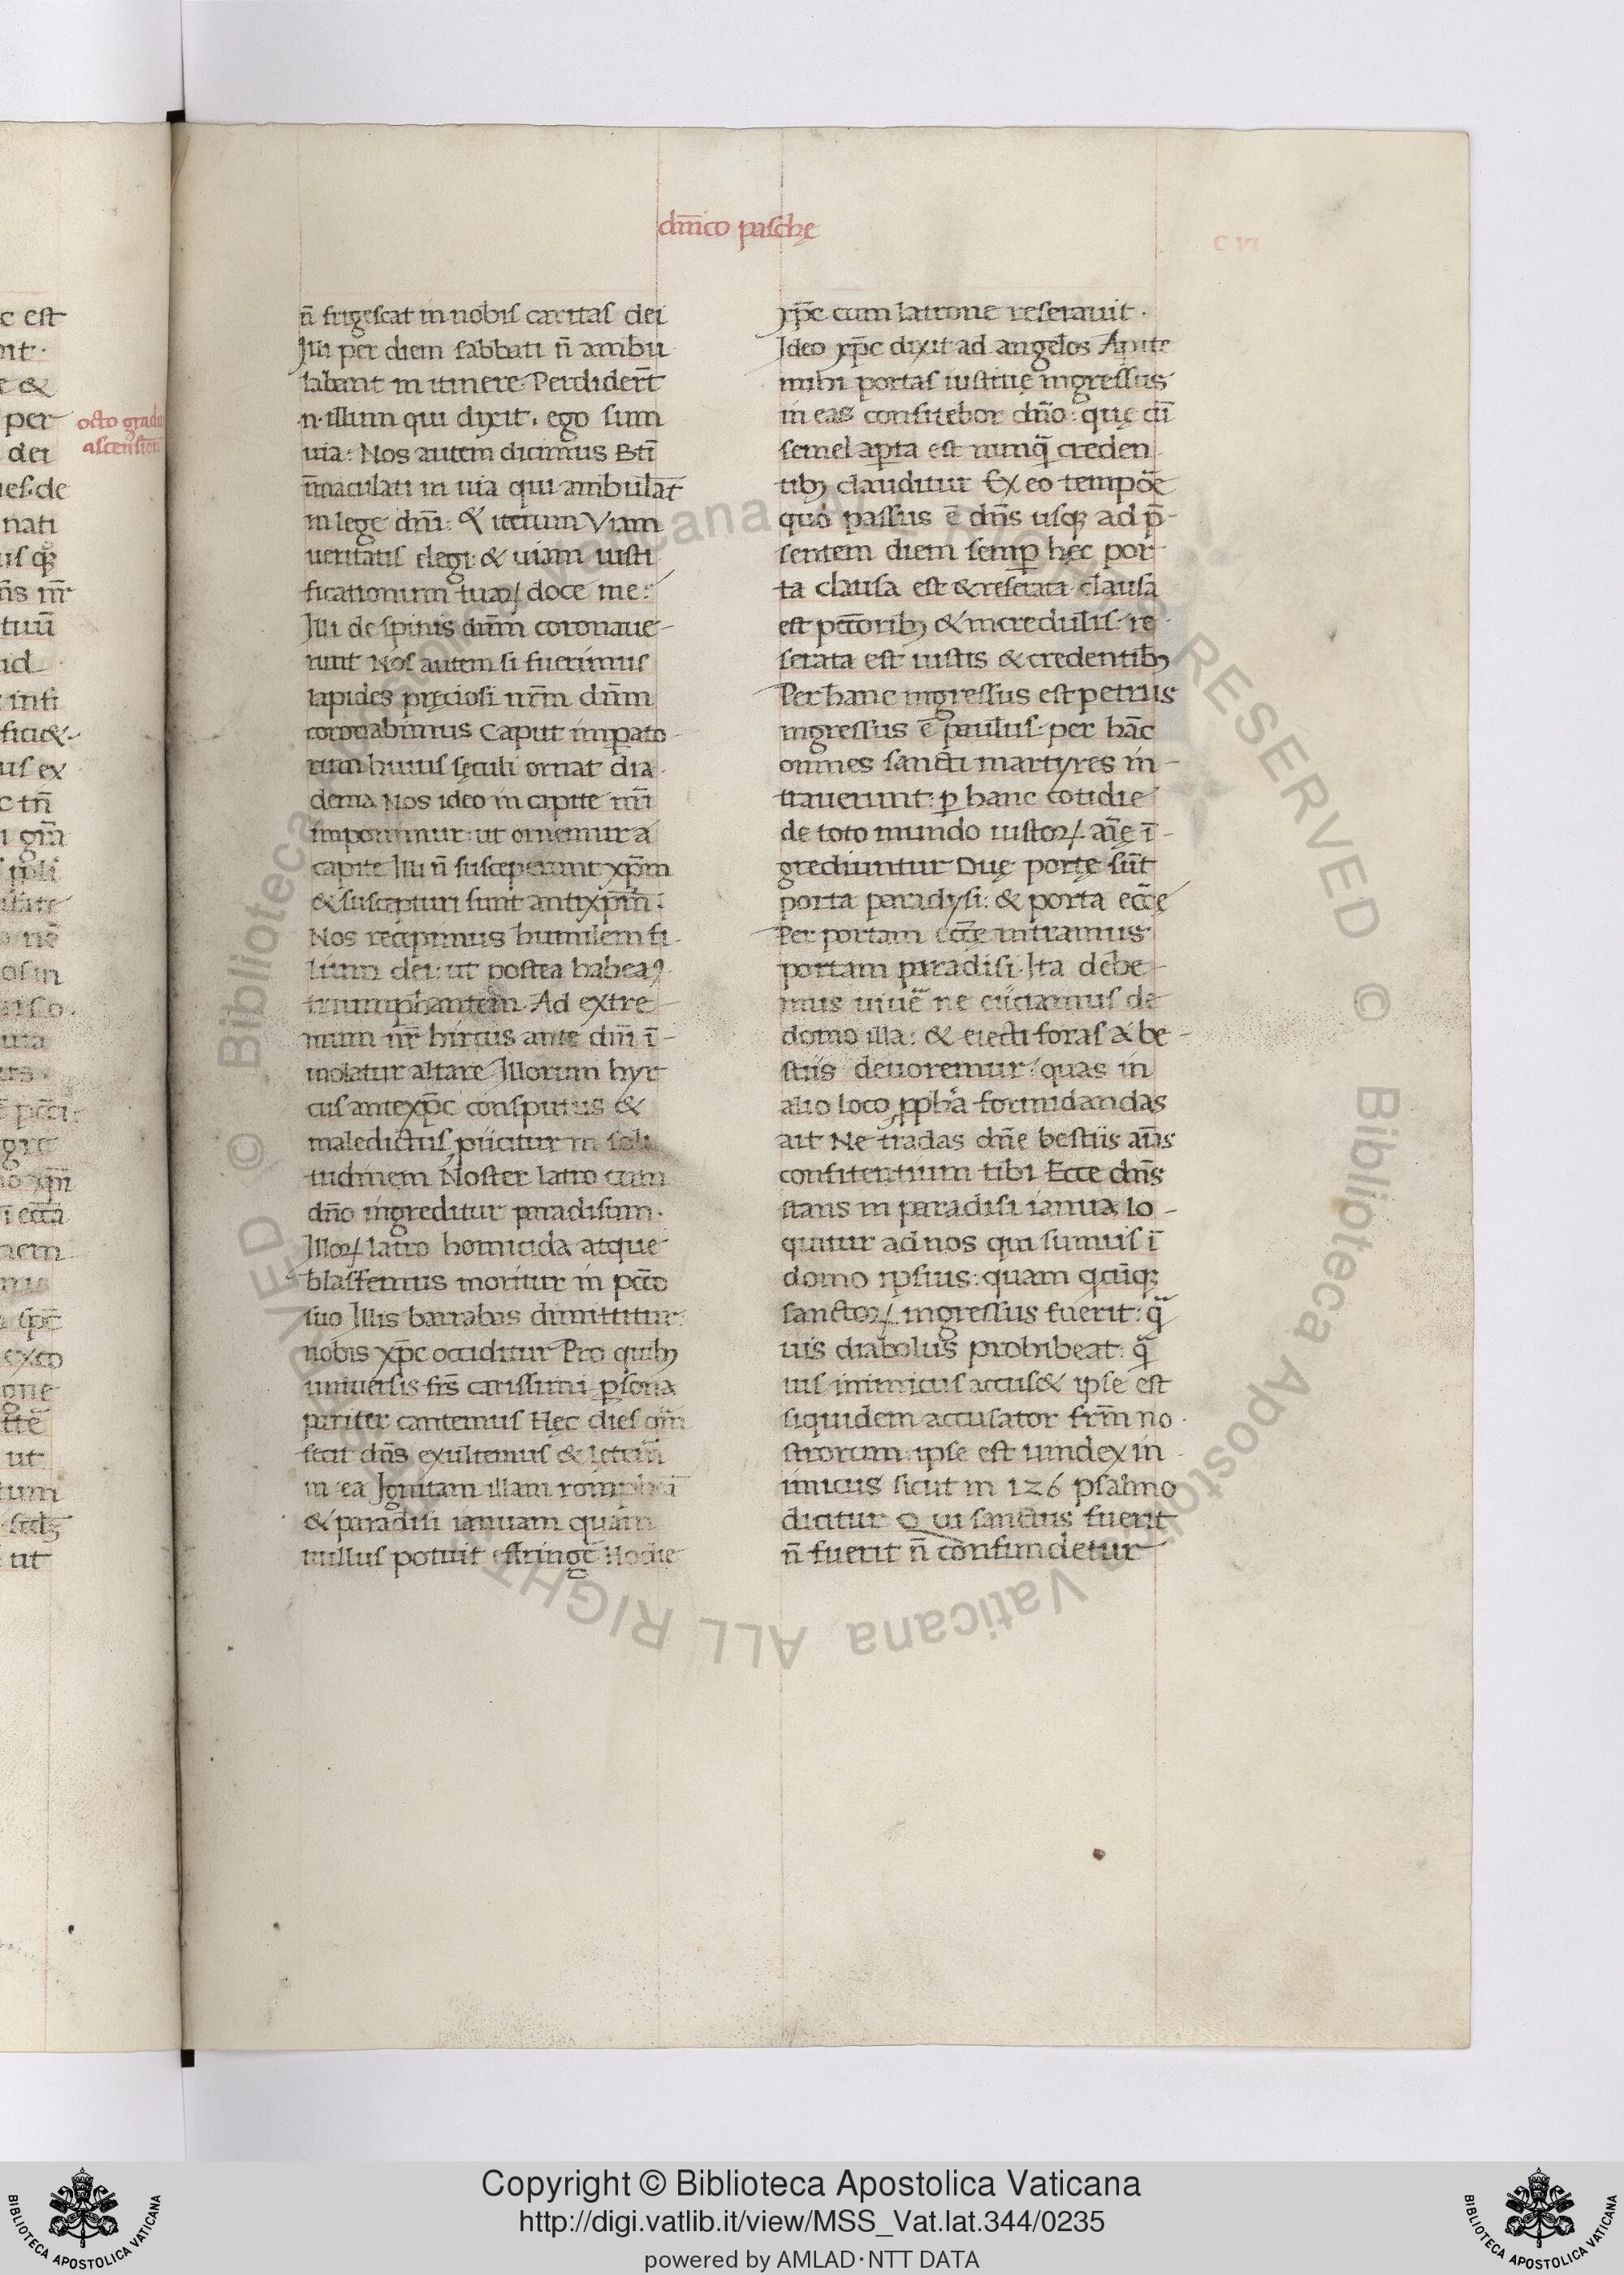 c est
nt·
e &
per
dei
nati
tuū
ut
octo gradu
ascensionū
dm̄ico paschę
C VI
n̄ frigescat in nobis caritas dei
Illi per diem sabbati n̄ ambu
labant in itinere. Perdider̄t
·n· illum qui dixit. ego sum
uia: Nos autem dicimus Bt̄i
īmaculati in uia qui ambulāt
in lege dn̄i: & iterum Viam
ueritatis elegi: & uiam iusti
ficationum tuaꝝ doce me:
Illi de spinis dn̄m coronaue-
runt Nos autem si fuerimus
lapides pręciosi nr̄m dn̄m
coronabimus Caput imꝑato-
rum huius sęculi ornat dia-
dema Nos ideo in capite nr̄i
imponimur: ut ornemur a
capite Illi n̄ susceperunt xp̄m
& suscepturi sunt antixp̄m:
Nos recepimus humilem fi-
lium dei: ut postea habeaꝰ
triumphantem. Ad extre-
mum nr̄ hircus ante dn̄i ī-
molatur altare Illorum hyr
cus antexp̄c consputus &
maledictus, ꝓiicitur in soli
tudinem Noster latro cum
dn̄o ingreditur paradisum.
Illoꝝ latro homicida atque
blasfemus moritur in pcc̄o
suo Illis barrabas dimittitur:
nobis xp̄c occiditur Pro quibꝫ
universis frs̄ carissimi ꝑsona
pariter cantemus Hęc dies q̄m
fecit dn̄s exultemus & letem̄
in ea Ignitam illam romphēā
& paradisi ianuam quam
nullus potuit effringē Hodie
xp̄c cum latrone reserauit·
Ideo xp̄c dixit ad angelos Apite
mihi portas iustitię ingressus
in eas confitebor dn̄o: quę cū
semel aꝑta est nunq̄ creden
tibꝫ clauditur Ex eo tempōe
quo passus ē dn̄s usqꝫ ad p̄-
sentem diem semꝑ hęc por-
ta clausa est & reserata· clausa
est pccoribꝫ & incredulis: re-
serata est iustis & credentibꝫ
Per hanc ingressus est petrus
ingressus ē paulus: per hāc
omnes sancti martyres in-
trauerunt: ꝑ hanc cotidie
de toto mundo iustoꝝ aīę ī-
grediuntur Duę portę sūt
porta paradysi: & porta ecc̄ę
Per portam ecc̄ę intramus
portam paradisi. Ita debe-
mus viuē ne eiiciamus de
domo illa: & eiecti foras a be-
stiis deuoremur: quas in
alio loco ꝓpha formidandas
ait Ne tradas dn̄e bestiis aīas
confitentium tibi Ecce dn̄s
stans in paradisi ianua lo-
quitur ad nos qui sumus ī
domo ipsius: quam qcūqꝫ
sanctoꝝ ingressus fuerit: q̄
uis diabolus prohibeat: q̄
uis inimicus accus& ipse est
siquidem accusator frm̄ no-
strorum: ipse est uindex in-
imicus sicut in 126 psalmo
dicitur Qui sanctus fuerit
n̄ fuerit n̄ confundetur
© Biblioteca Apostolica Vaticana ALL RIGHTS RESERVED
© Biblioteca Apostolica Vaticana ALL RIGHTS RESERVED
Copyright © Biblioteca Apostolica Vaticana
http://digi.vatlib.it/view/MSS_Vat.lat.344/0235
powered by AMLAD·NTT DATA
BIBLIOTECA APOSTOLICA VATICANA
BIBLIOTECA APOSTOLICA VATICANA